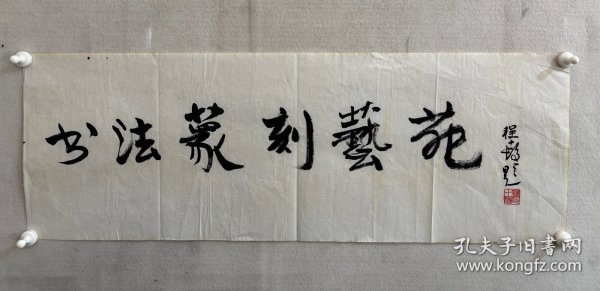 书法篆刻藝苑
程十髮题
孔夫子旧书网
www.kongfz.com